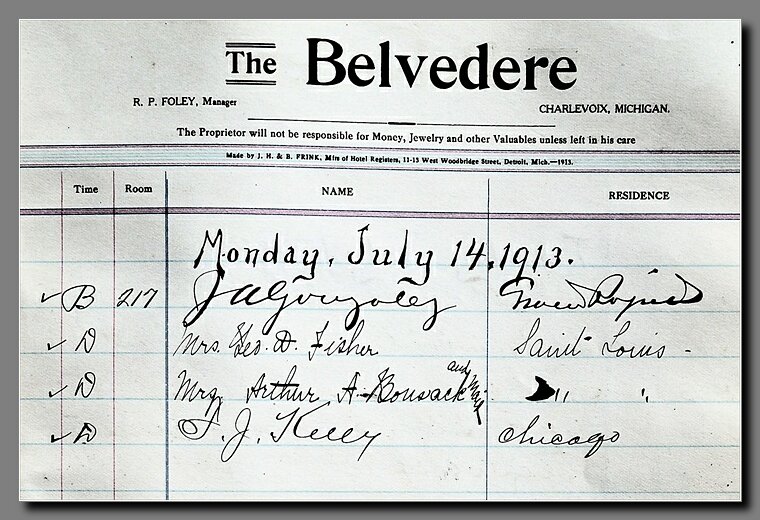 The Belvedere
R. P. FOLEY, Manager
CHARLEVOIX, MICHIGAN.
The Proprietor will not be responsible for Money, Jewelry and other Valuables unless left in his care
Made by J. H. & B. FRINK, Mfrs of Hotel Registers, 11-13 West Woodbridge Street, Detroit, Mich.—1913.
Time Room NAME RESIDENCE
Monday, July 14, 1913.
B 217 J A Gonzolez Grand Rapids
D Mrs. Geo. D. Fisher Saint Louis -
D Mrs Arthur A. Bonsack and " "
D J. Kelly Chicago